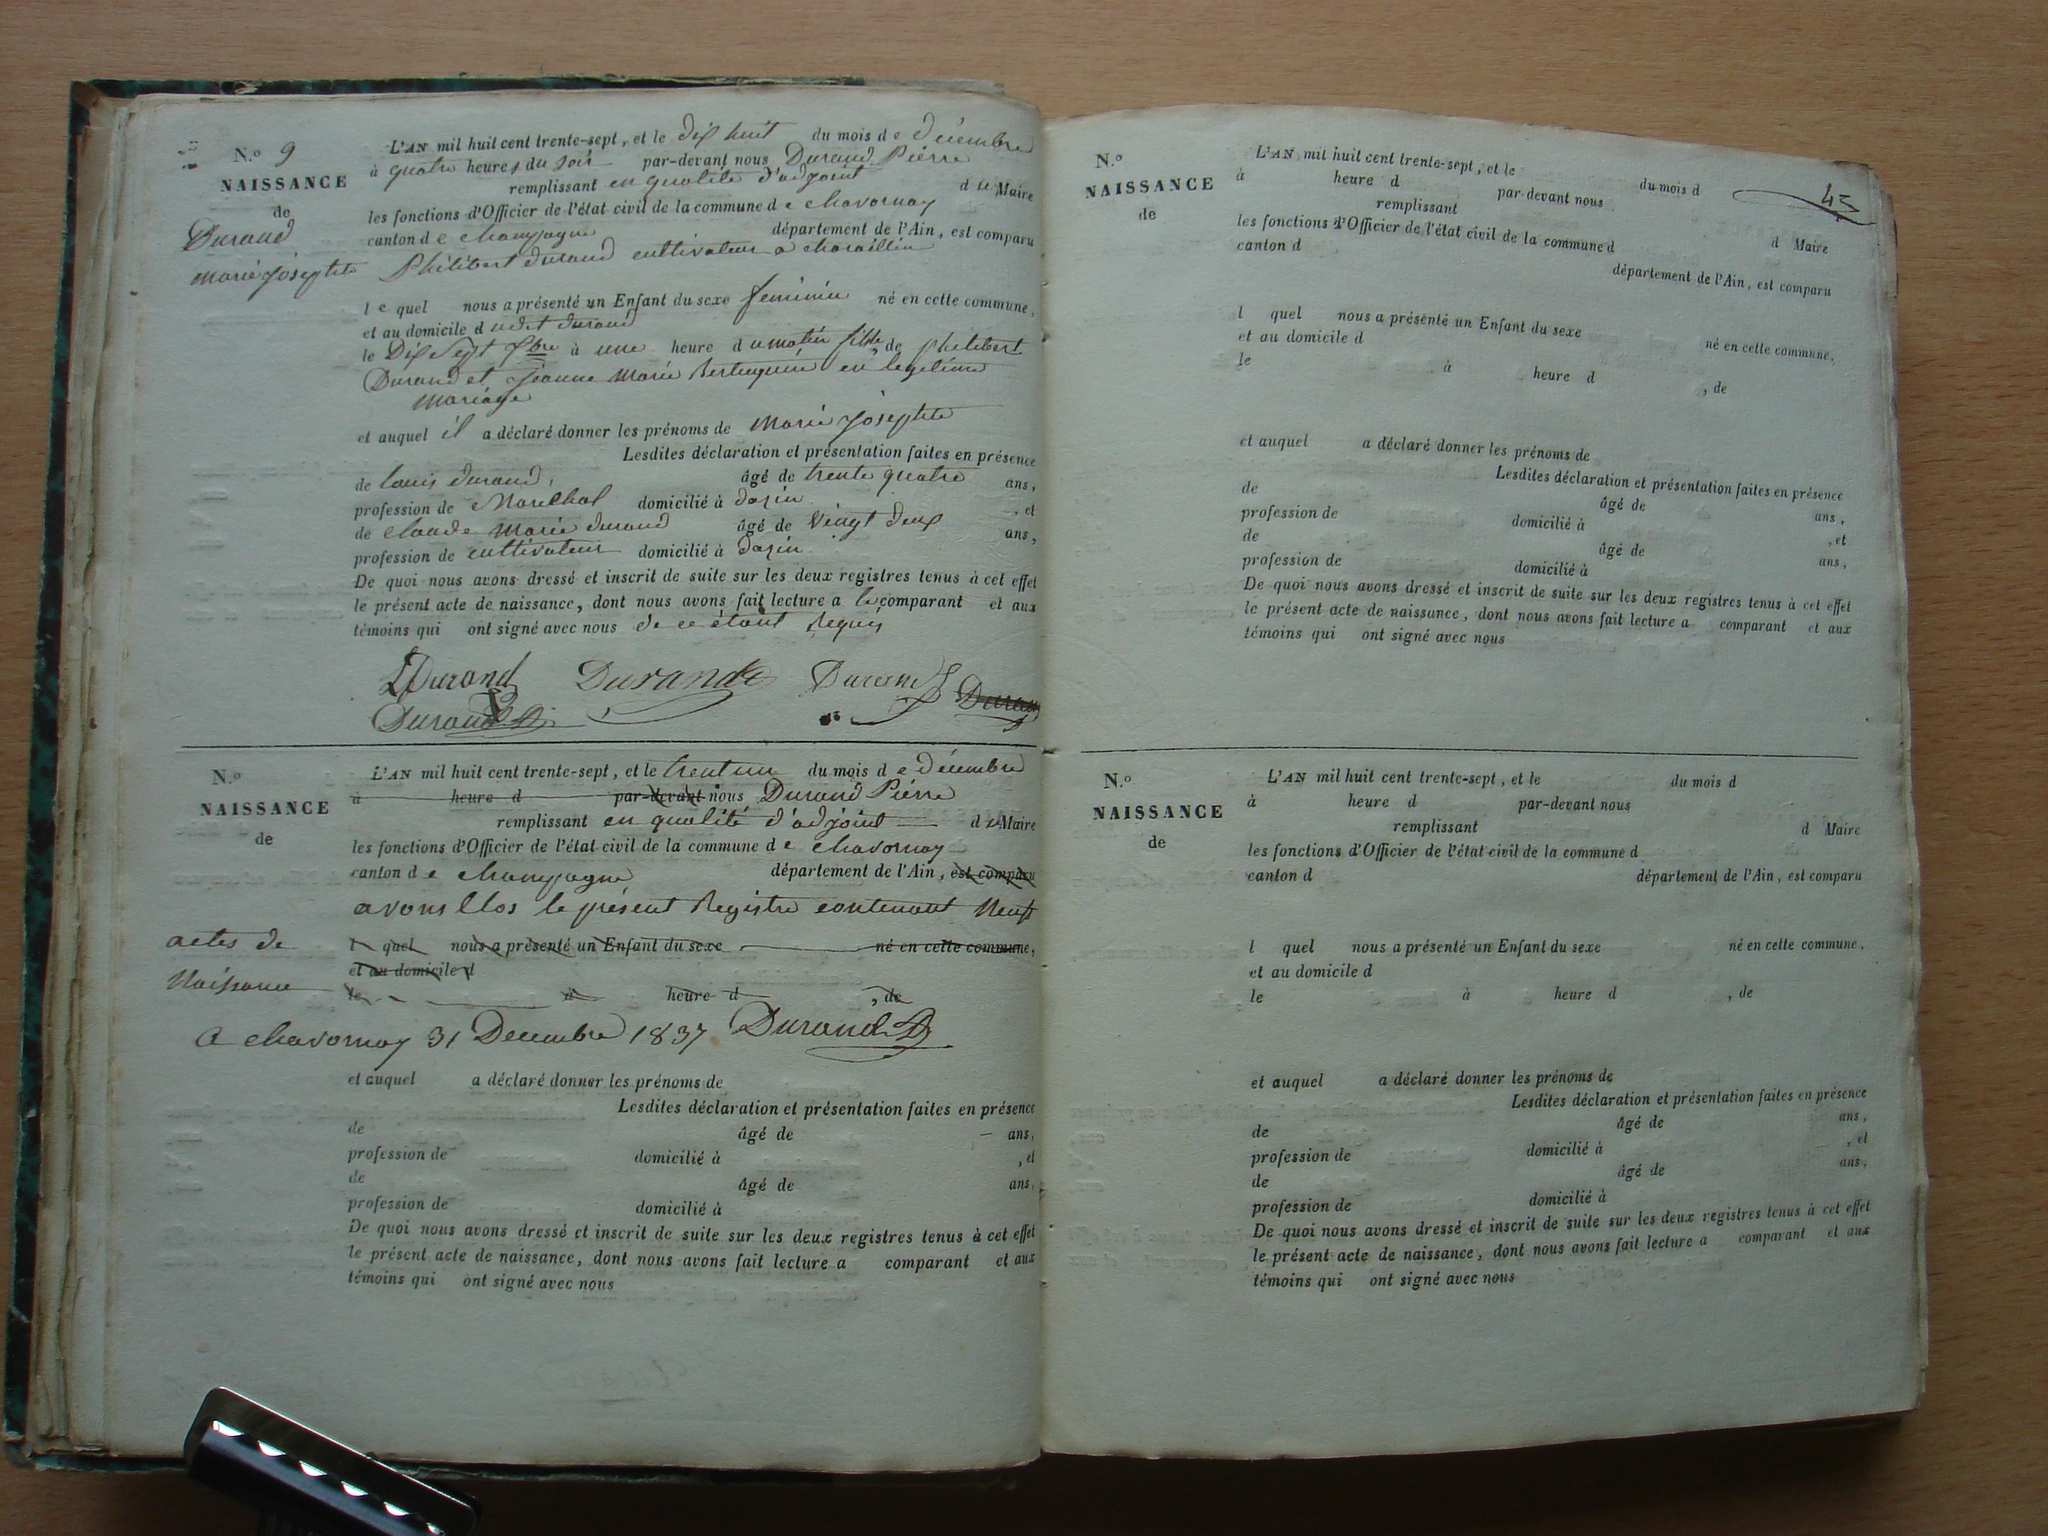 N.o 9
NAISSANCE
de
Durand
Marie Josephte
L'AN mil huit cent trente-sept, et le dix huit du mois de décembre
à quatre heures du soir par-devant nous Durand Pierre
remplissant en qualité d'adjoint du Maire
les fonctions d'Officier de l'état civil de la commune de Chavornay
canton de Champagne département de l'Ain, est comparu
Philibert durand cultivateur a
le quel nous a présenté un Enfant du sexe feminin né en cette commune,
et au domicile dudit durand
le Dix Sept Xbre à une heure du matin fille, de philibert
Durand et jeanne Marie en legitime
Mariage
et auquel il a déclaré donner les prénoms de Marie Josephte
Lesdites déclaration et présentation faites en présence
de louis durand, âgé de trente quatre ans,
profession de Marechal domicilié à dazin , et
de claude Marie durand âgé de vingt deux ans,
profession de cultivateur domicilié à dazin
De quoi nous avons dressé et inscrit de suite sur les deux registres tenus à cet effet
le présent acte de naissance, dont nous avons fait lecture a le comparant et aux
témoins qui ont signé avec nous de ce étant Requis
LDurand Durand Durand Duran
Durand
N.o
NAISSANCE
de
L'AN mil huit cent trente-sept, et le trent un du mois de décembre
à heure d par-devant nous Durand Pierre
remplissant en qualité d'adjoint du Maire
les fonctions d'Officier de l'état civil de la commune de Chavornay
canton de Champagne département de l'Ain, est comparu
avons Clos le présent Registre contenant Neuf
actes de
Naissance
l quel nous a présenté un Enfant du sexe né en cette commune,
et au domicile d
le à heure d , de
A Chavornay 31 Decembre 1837 Durand
et auquel a déclaré donner les prénoms de
Lesdites déclaration et présentation faites en présence
de âgé de ans,
profession de domicilié à , et
de âgé de ans,
profession de domicilié à
De quoi nous avons dressé et inscrit de suite sur les deux registres tenus à cet effet
le présent acte de naissance, dont nous avons fait lecture a comparant et aux
témoins qui ont signé avec nous
45
N.o
NAISSANCE
de
L'AN mil huit cent trente-sept, et le du mois d
à heure d par-devant nous
remplissant d Maire
les fonctions d'Officier de l'état civil de la commune d
canton d département de l'Ain, est comparu
l quel nous a présenté un Enfant du sexe né en cette commune,
et au domicile d
le à heure d , de
et auquel a déclaré donner les prénoms de
Lesdites déclaration et présentation faites en présence
de âgé de ans,
profession de domicilié à , et
de âgé de ans,
profession de domicilié à
De quoi nous avons dressé et inscrit de suite sur les deux registres tenus à cet effet
le présent acte de naissance, dont nous avons fait lecture a comparant et aux
témoins qui ont signé avec nous
N.o
NAISSANCE
de
L'AN mil huit cent trente-sept, et le du mois d
à heure d par-devant nous
remplissant d Maire
les fonctions d'Officier de l'état civil de la commune d
canton d département de l'Ain, est comparu
l quel nous a présenté un Enfant du sexe né en cette commune,
et au domicile d
le à heure d , de
et auquel a déclaré donner les prénoms de
Lesdites déclaration et présentation faites en présence
de âgé de ans,
profession de domicilié à , et
de âgé de ans,
profession de domicilié à
De quoi nous avons dressé et inscrit de suite sur les deux registres tenus à cet effet
le présent acte de naissance, dont nous avons fait lecture a comparant et aux
témoins qui ont signé avec nous